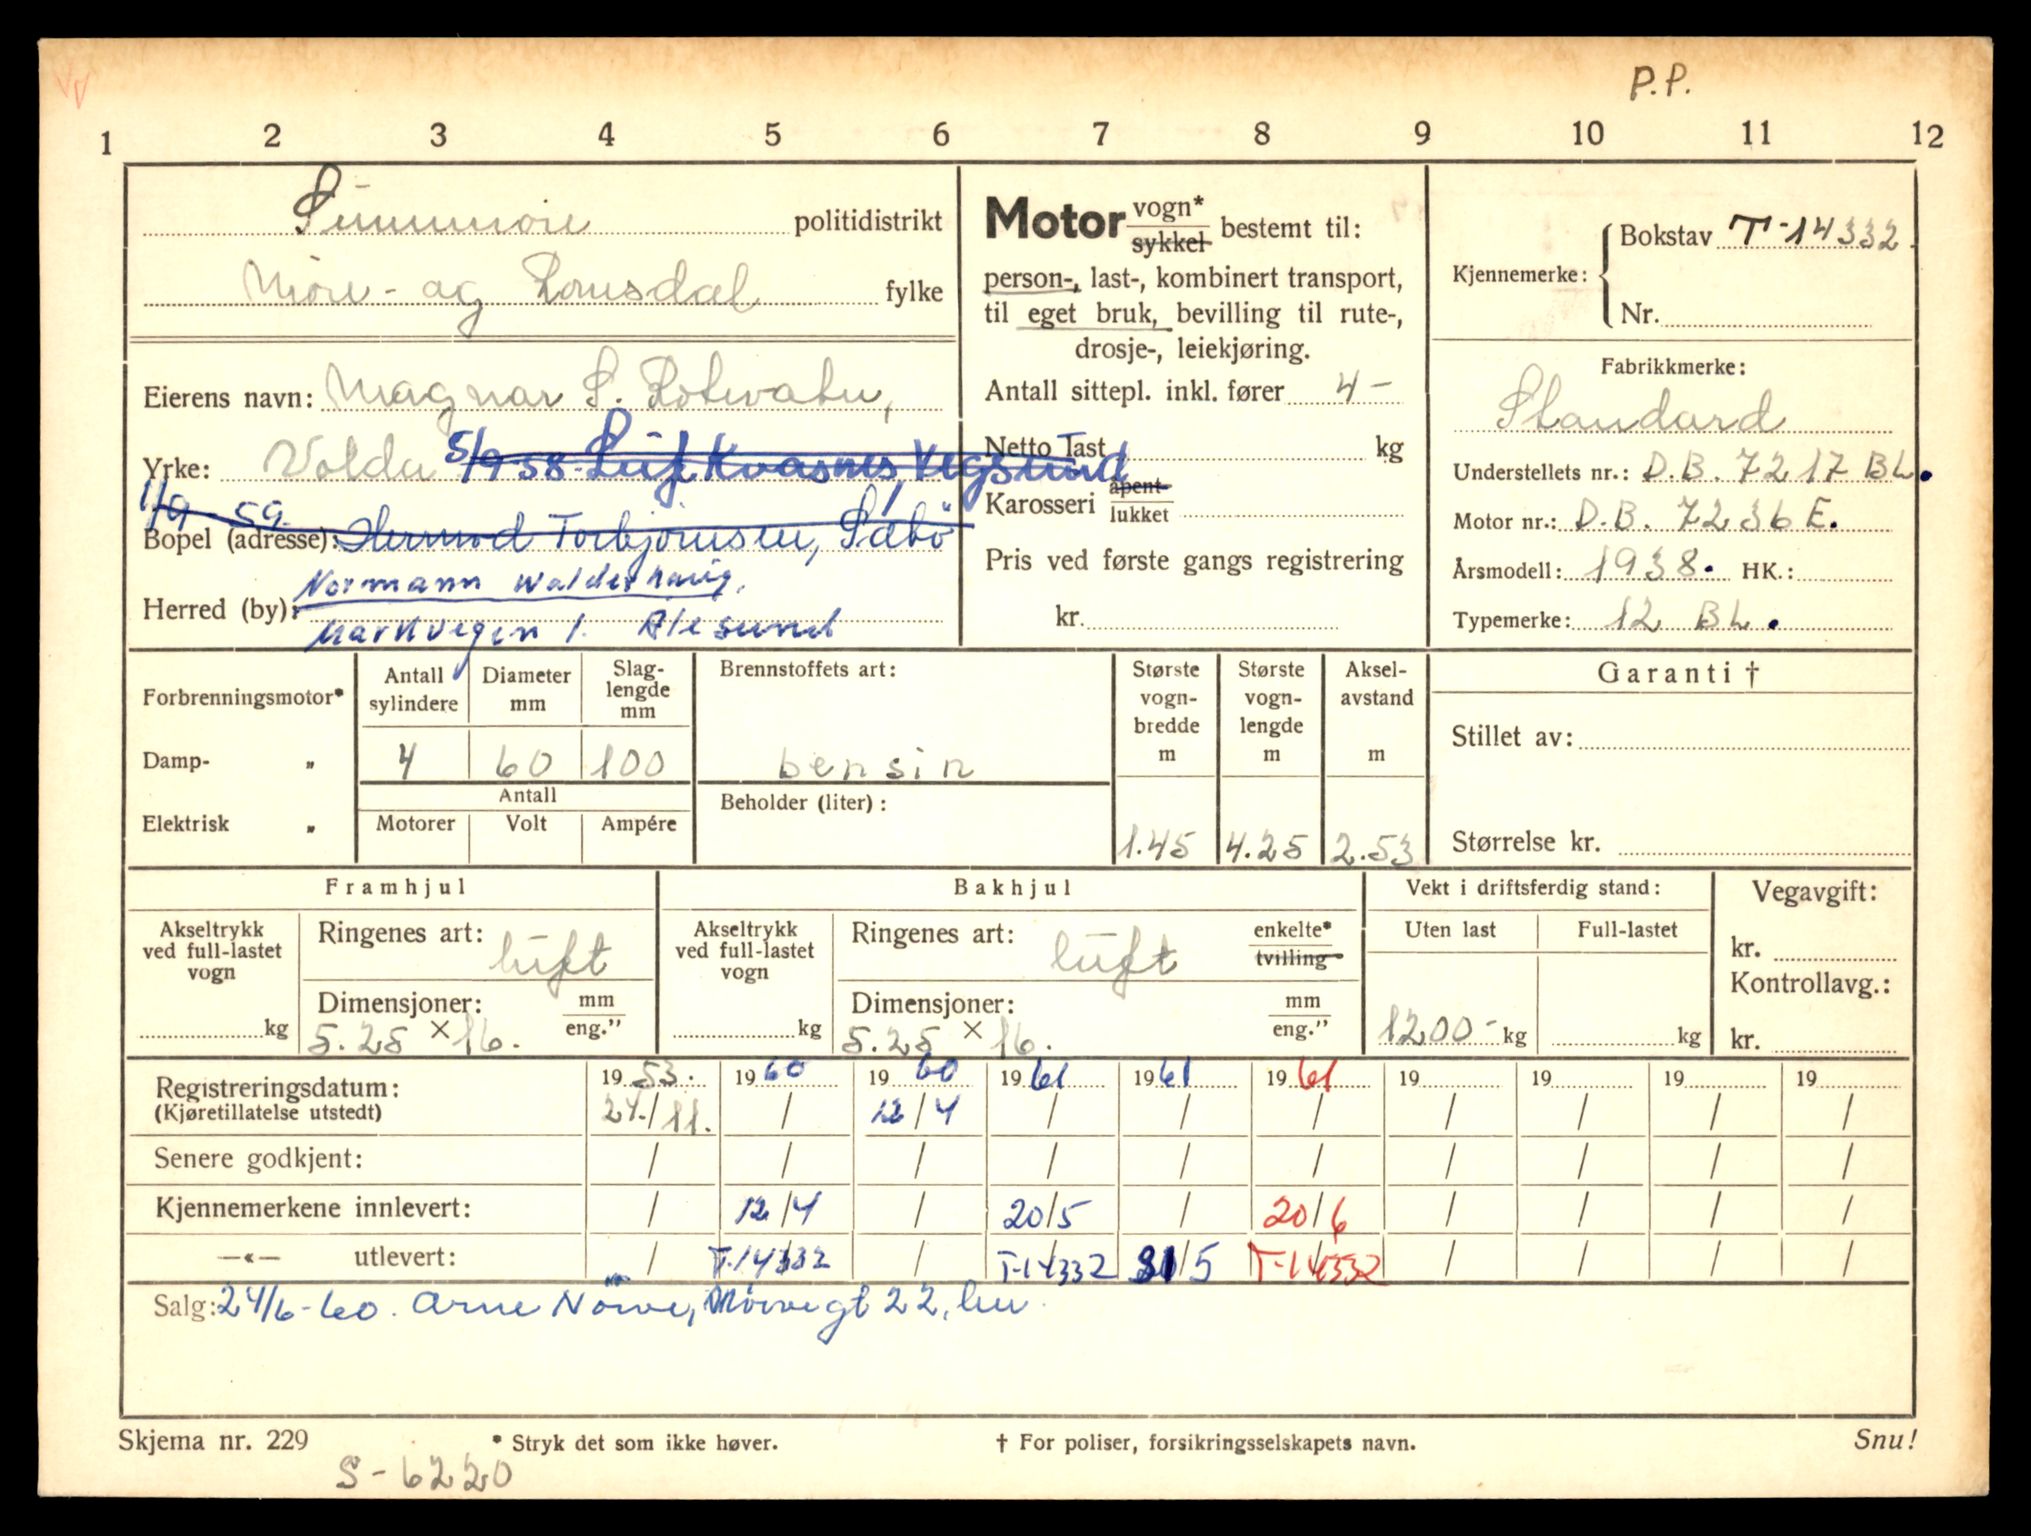 P.P.
1 2 3 4 5 6 7 8 9 10 11 12
Sunnmøre politidistrikt
Møre- og Romsdal fylke
Eierens navn: Magnar S. Rotevatn,
Yrke: Volda 5/9-58. Leif Kvasnes, Vegsund
1/9-59.
Bopel (adresse): Hermod Torbjørnsen, Sæbö
Normann Walderhaug.
Herred (by):
Markvegen 1. Ålesund
Motor vogn* sykkel bestemt til:
person-, last-, kombinert transport,
til eget bruk, bevilling til rute-,
drosje-, leiekjøring.
Antall sittepl. inkl. fører 4-
Netto Tast kg
Karosseri åpent lukket
Pris ved første gangs registrering
kr.
Kjennemerke: Bokstav T-14332
Nr.
Fabrikkmerke:
Standard
Understellets nr.: D.B. 7217 BL.
Motor nr.: D.B. 7236 E.
Årsmodell: 1938. HK.:
Typemerke: 12 BL.
Forbrenningsmotor*
Damp- "
Elektrisk "
Antall sylindere Diameter mm Slag-lengde mm
4 60 100
Antall
Motorer Volt Ampére
Brennstoffets art:
bensin
Beholder (liter):
Største vogn-bredde m Største vogn-lengde m Aksel-avstand m
1.45 4.25 2.53
Garanti †
Stillet av:
Størrelse kr.
Framhjul
Akseltrykk ved full-lastet vogn
kg
Ringenes art: luft
Dimensjoner: mm eng."
5.25 × 16.
Bakhjul
Akseltrykk ved full-lastet vogn
kg
Ringenes art: luft enkelte* tvilling
Dimensjoner: mm eng."
5.25 × 16.
Vekt i driftsferdig stand:
Uten last Full-lastet
1200- kg kg
Vegavgift:
kr.
Kontrollavg.:
kr.
Registreringsdatum: 19 53. 19 60 19 60 19 61 19 61 19 61 19 19 19 19
(Kjøretillatelse utstedt) 24./11. / 12/4 / / / / / / /
Senere godkjent: / / / / / / / / / /
Kjennemerkene innlevert: / 12/4 / 20/5 / 20/6 / / / /
—«— utlevert: / T-14332 / T-14332 31/5 T-14332 / / / /
Salg: 24/6-60. Arne Nörve, Nörvegt 22, her
Skjema nr. 229
* Stryk det som ikke høver.
† For poliser, forsikringsselskapets navn.
Snu!
S-6220